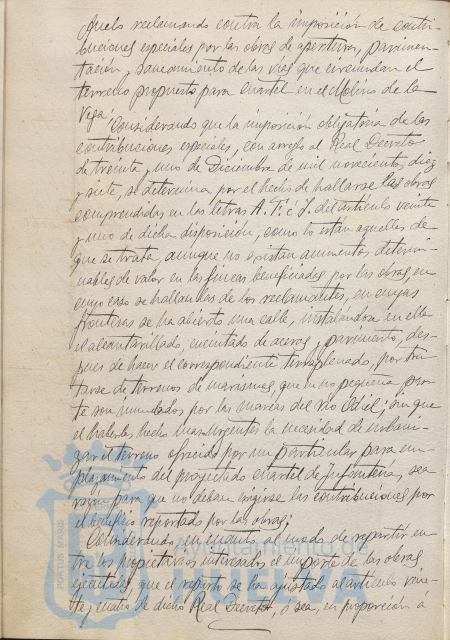 quels reclamando contra la imposición de contri-
buciones especiales por las obras de apertura, pavimen-
tación y saneamiento de las vías que circundan el
terreno propuesto para cuartel en el Molino de la
Vega;
Considerando que la imposición obligatoria de las
contribuciones especiales, con arreglo al Real Decreto
de treinta y uno de Diciembre de mil novecientos diez
y siete, se determina por el hecho de hallarse las obras
comprendidas en las letras A. F. é I. del artículo veinte
y uno de dicha disposición, como lo están aquellas de
que se trata, aunque no existan aumentos determi-
nables de valor en las fincas beneficiadas por las obras, en
cuyo caso se hallan las de los reclamantes, en cuyas
fronteras se ha abierto una calle, instalándose en ella
el alcantarillado, encintado de aceras y pavimento, des-
pués de hacer el correspondiente terraplenado, por tra-
tarse de terrenos de marismas, que en no pequeña par-
te son inundados por las mareas del río Odiel; sin que
el haberlas hecho mas urgentes la necesidad de
el terreno ofrecido por un particular para em-
plazamiento del proyectado cuartel de Infantería, sea
razón para que no deban exigirse las contribuciones por
el beneficio reportado por las obras;
Considerando, en cuanto al modo de repartir en-
tre los propietarios interesados el importe de las obras
ejecutadas, que el reparto se ha ajustado al artículo vein-
te y cuatro de dicho Real Decreto, ó sea, en proporción á
PORTUS MARIS
Ayuntamiento de
HUELVA